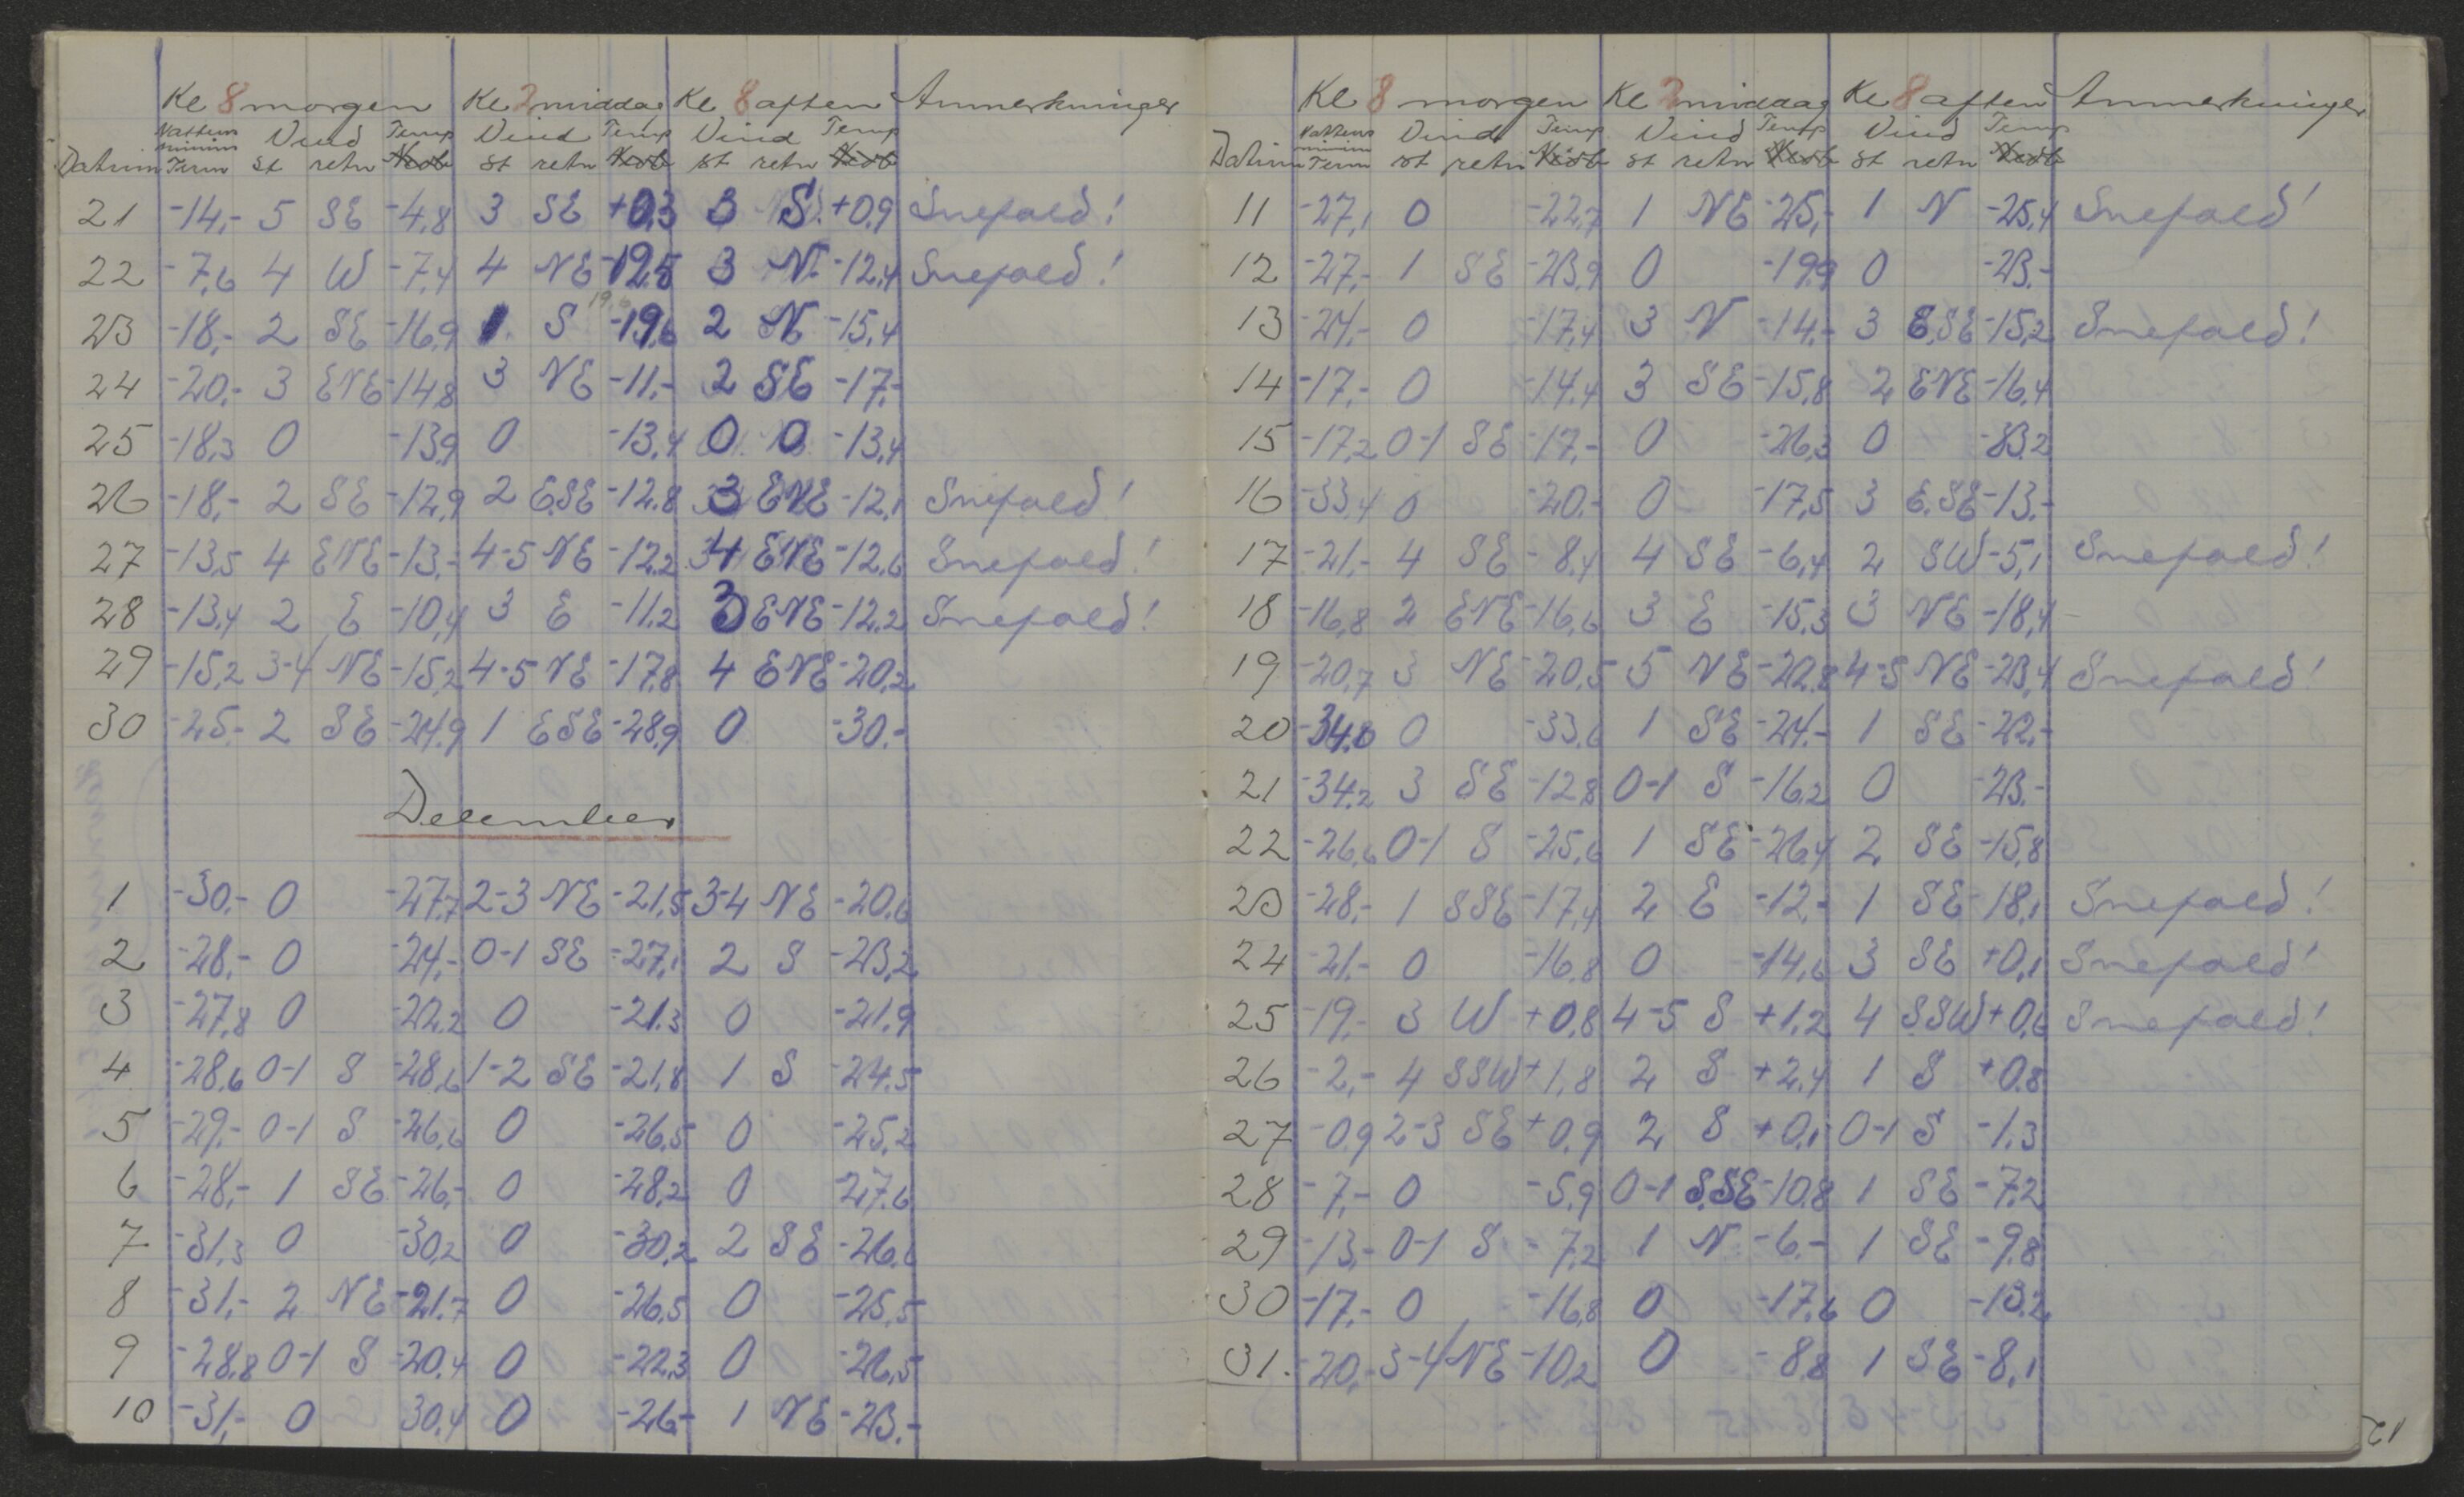 Kl 8 morgen Kl 2 middag Kl 8 aften Anmerkninger
Nattens minim Vind Temp Vind Temp Vind Temp
Datum Term st retn Nedb st retn Nedb st retn Nedb
21 -14,- 5 SE -4,8 3 SE +0,3 3 S. +0,9 Snefald!
22 -7,6 4 W -7,4 4 NE -12,5 3 N. -12,4 Snefald!
19,6
23 -18,- 2 SE -16,9 1 S -19,6 2 N -15,4
24 -20,- 3 ENE -14,8 3 NE -11,- 2 SE -17,-
25 -18,3 0 -13,9 0 -13,4 0 0 -13,4
26 -18,- 2 SE -12,9 2 ESE -12,8 3 ENE -12,1 Snefald!
27 -13,5 4 ENE -13,- 4-5 NE -12,2 4 ENE -12,6 Snefald!
28 -13,4 2 E -10,4 3 E -11,2 3 ENE -12,2 Snefald!
29 -15,2 3-4 NE -15,2 4-5 NE -17,8 4 ENE -20,2
30 -25,- 2 SE -24,9 1 ESE -28,9 0 -30,-
December
1 -30,- 0 -27,7 2-3 NE -21,5 3-4 NE -20,6
2 -28,- 0 -24,- 0-1 SE -27,1 2 S -23,2
3 -27,8 0 -22,2 0 -21,3 0 -21,9
4 -28,6 0-1 S -28,6 1-2 SE -21,8 1 S -24,5
5 -29,- 0-1 S -26,6 0 -26,5 0 -25,2
6 -28,- 1 SE -26,- 0 -28,2 0 -27,6
7 -31,3 0 -30,2 0 -30,2 2 SE -26,6
8 -31,- 2 NE -21,7 0 -26,5 0 -25,5
9 -28,8 0-1 S -20,4 0 -22,3 0 -26,5
10 -31,- 0 30,4 0 -26,- 1 NE -23,-
Kl 8 morgen Kl 2 middag Kl 8 aften Anmerkninger
Nattens minim Vind Temp Vind Temp Vind Temp
Datum Term st retn Nedb st retn Nedb st retn Nedb
11 -27,1 0 -22,7 1 NE -25,- 1 N -25,4 Snefald!
12 -27,- 1 SE -23,9 0 -19,9 0 -23,-
13 -24,- 0 -17,4 3 N -14,- 3 E.SE -15,2 Snefald!
14 -17,- 0 -14,4 3 SE -15,8 2 ENE -16,4
15 -17,2 0-1 SE -17,- 0 -26,3 0
16 -33,4 0 -20,- 0 -17,5 3 E.SE -13,-
17 -21,- 4 SE -8,4 4 SE -6,4 2 SW -5,1 Snefald!
18 -16,8 2 ENE -16,6 3 E -15,3 3 NE -18,4
19 -20,7 3 NE -20,5 5 NE -22,8 4-5 NE -23,4 Snefald!
20 -34,8 0 -33,6 1 SE -24,- 1 SE -22,-
21 -34,2 3 SE -12,8 0-1 S -16,2 0 -23,-
22 -26,6 0-1 S -25,6 1 SE -26,4 2 SE -15,8
23 -28,- 1 SSE -17,4 2 E -12,- 1 SE -18,1 Snefald!
24 -21,- 0 -16,8 0 -14,6 3 SE +0,1 Snefald!
25 -19,- 3 W +0,8 4-5 S +1,2 4 SSW +0,6 Snefald!
26 -2,- 4 SSW +1,8 2 S +2,4 1 S +0,8
27 -0,9 2-3 SE +0,9 2 S +0,1 0-1 S -1,3
28 -7,- 0 -5,9 0-1 S.SE -10,8 1 SE -7,2
29 -13,- 0-1 S -7,2 1 N -6,- 1 SE -9,8
30 -17,- 0 -16,8 0 -17,6 0 -13,2
31. -20,- 3-4 NE -10,2 0 -8,8 1 SE -8,1
12